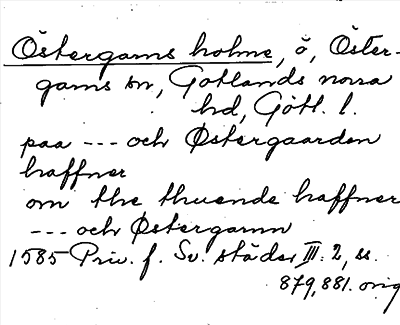 Östergams holme, ö, Öster-
gams sn, Gotlands norra
hd, Gotl. l.
paa --- och Østergaarden
haffner
om the thuende haffner
--- och Østergamn
1585 Priv. f. Sv. städer III: 2, ss.
879, 881. orig